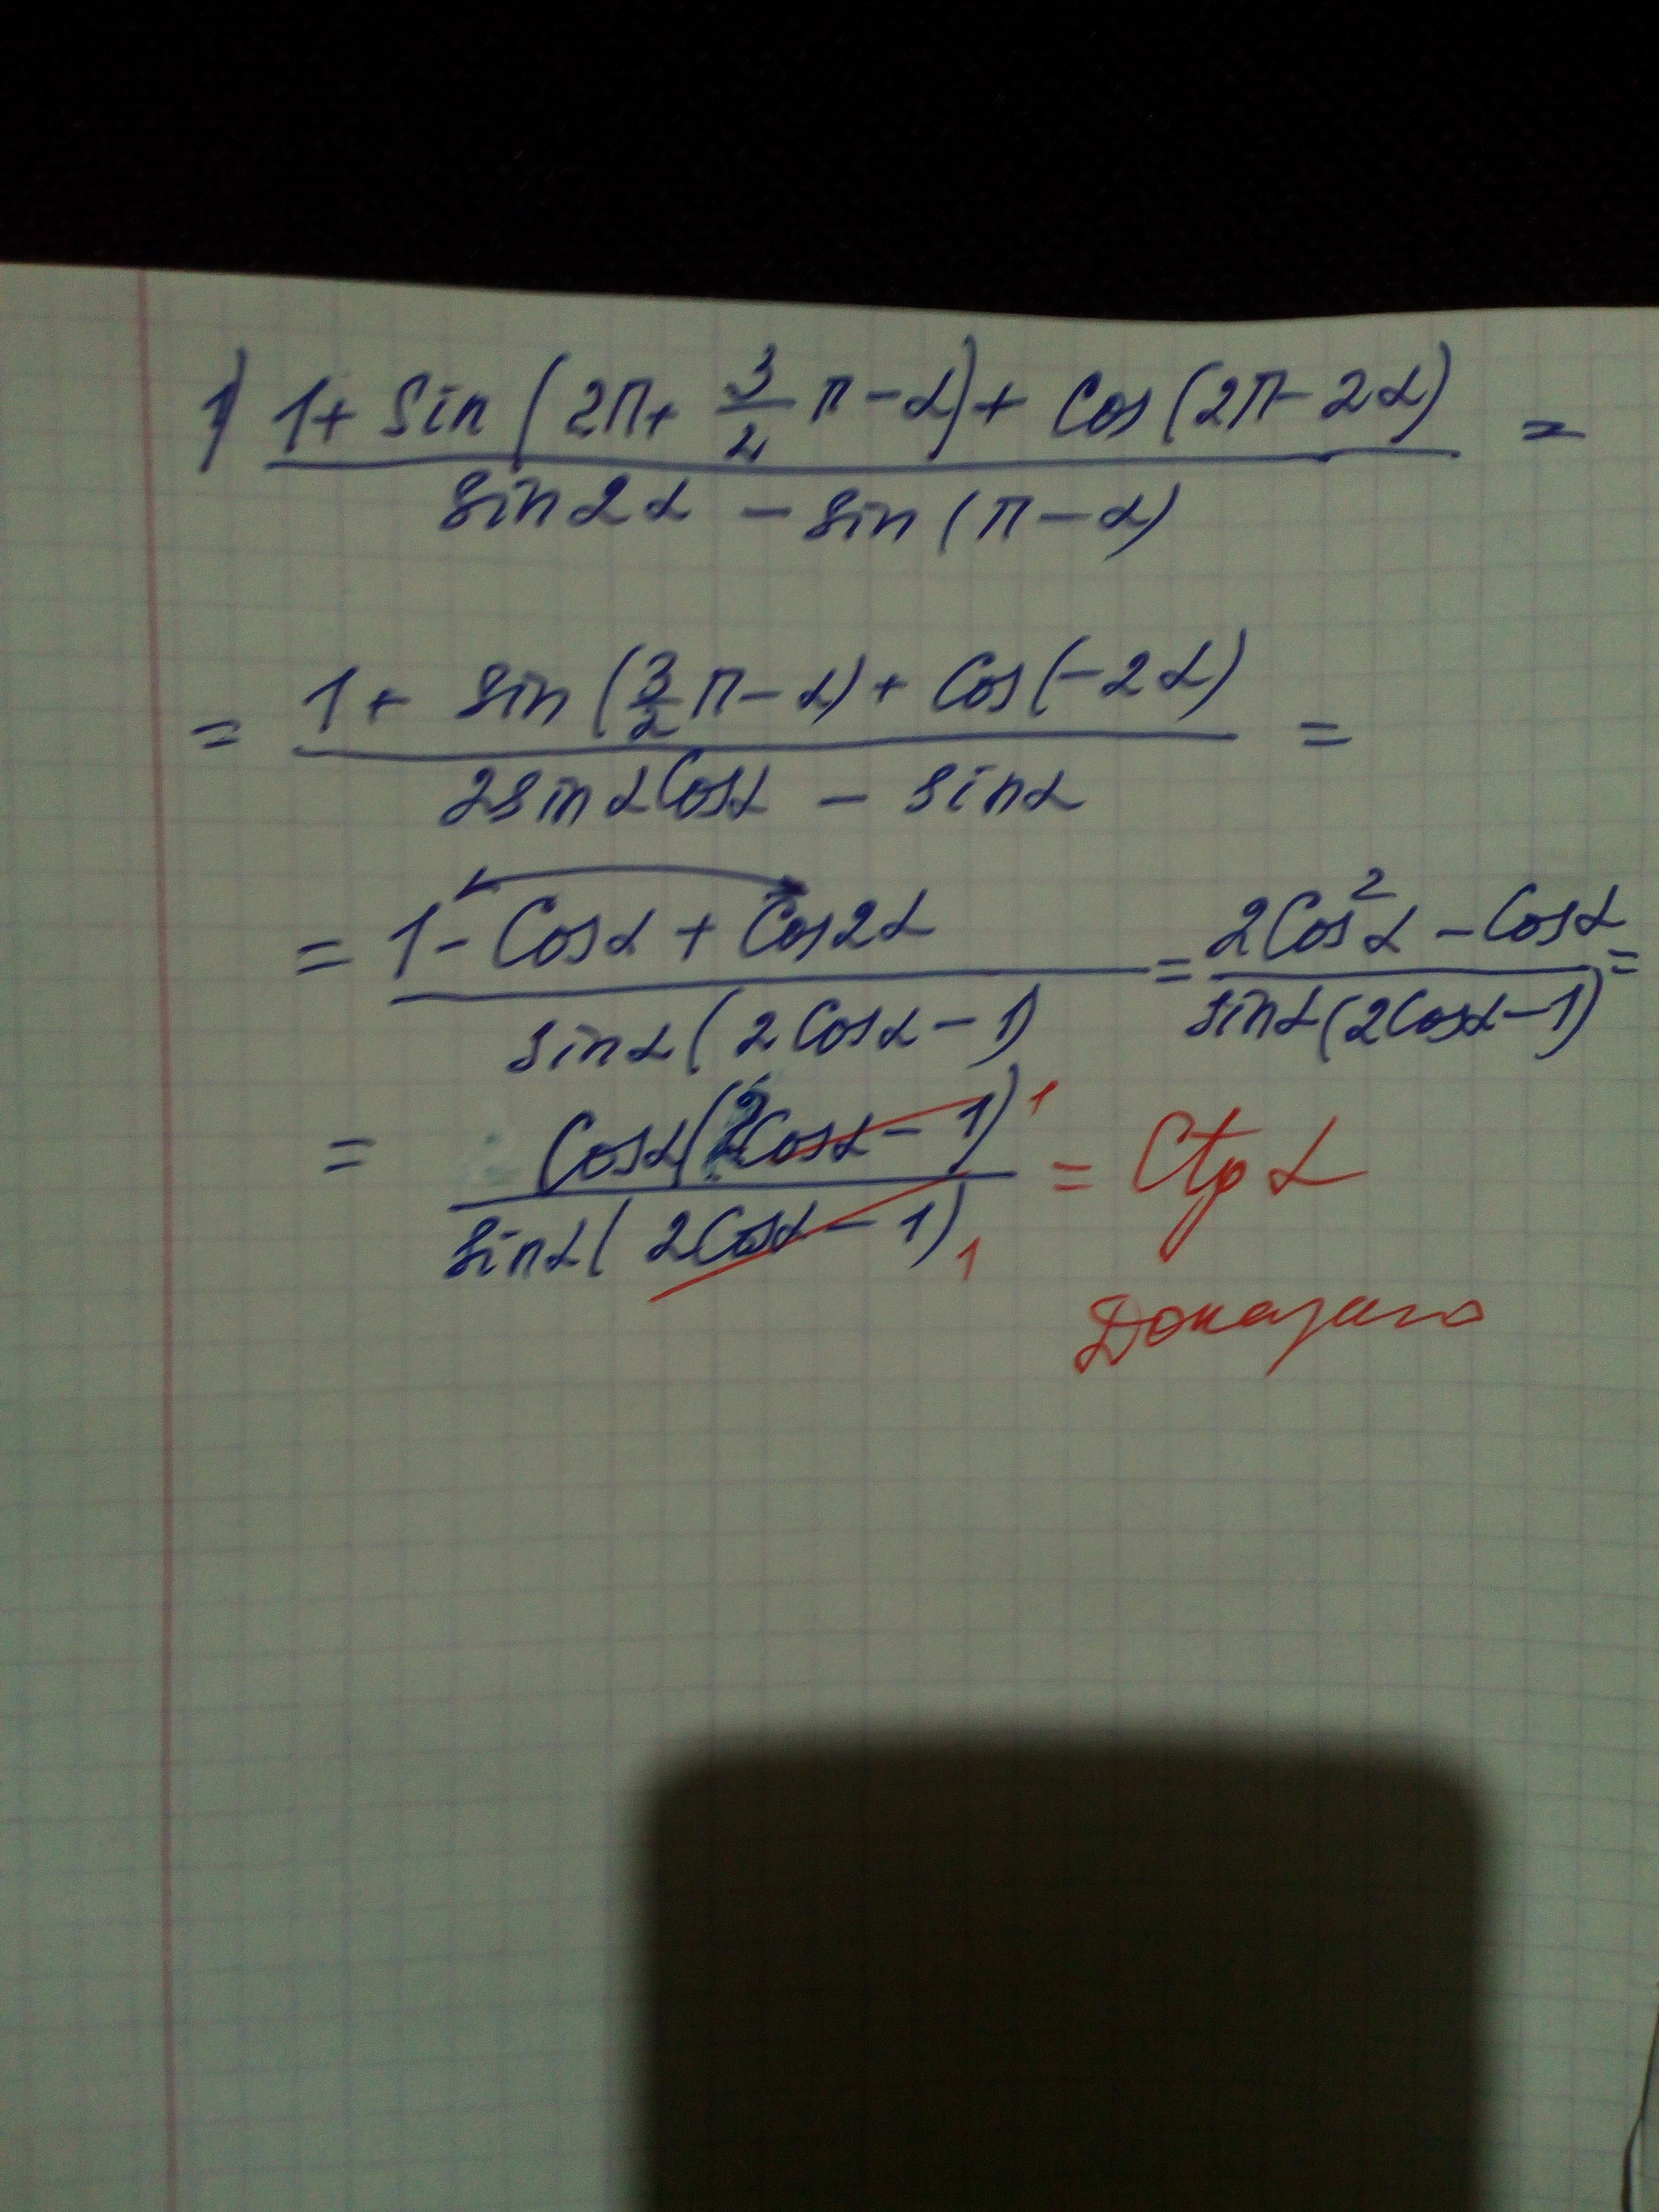 1) (1 + sin(2π + 3/2 π - α) + cos(2π - 2α)) / (sin2α - sin(π - α)) =
= (1 + sin(3/2 π - α) + cos(-2α)) / (2sinαcosα - sinα) =
= (1 - cosα + cos2α) / (sinα(2cosα - 1)) = (2cos²α - cosα) / (sinα(2cosα - 1)) =
= (cosα(2cosα - 1) 1) / (sinα(2cosα - 1) 1) = ctgα
Доказано